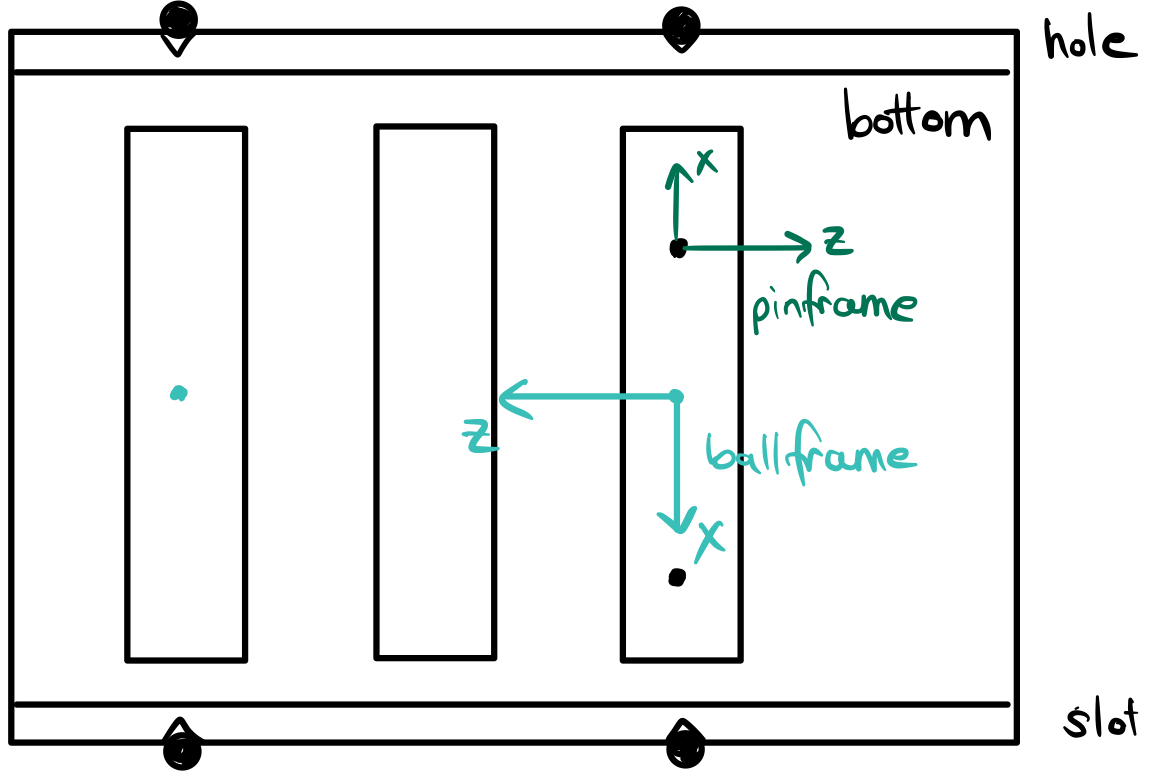 hole
bottom
x
z
pinframe
z
ballframe
x
slot